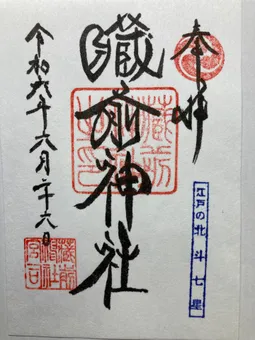 奉拝
藏前神社
江戸の北斗七星
令和元年六月二十六日